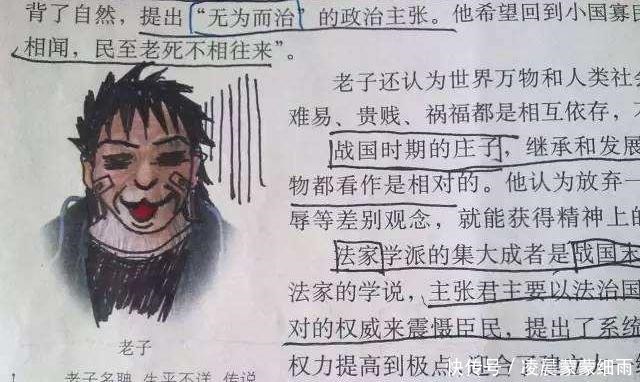 背了自然，提出“无为而治”的政治主张。他希望回到小国寡
相闻，民至老死不相往来”。
老子还认为世界万物和人类社会
难易、贵贱、祸福都是相互依存，
战国时期的庄子，继承和发展
物都看作是相对的。他认为放弃一
辱等差别观念，就能获得精神上的
法家学派的集大成者是战国末
法家的学说，主张君主要以法治国
对的权威来震慑臣民，提出了系统
权力提高到极点，迎合
老子
老子名聃，生平不详，传说
快传号／凌晨蒙蒙细雨